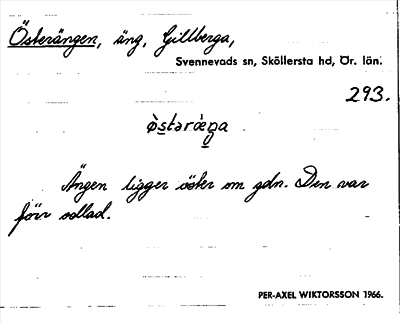 Österängen, äng, Gillberga,
Svennevads sn, Sköllersta hd, Ör. län.
293.
Ängen ligger öster om gdn. Den var
förr odlad.
PER-AXEL WIKTORSSON 1966.